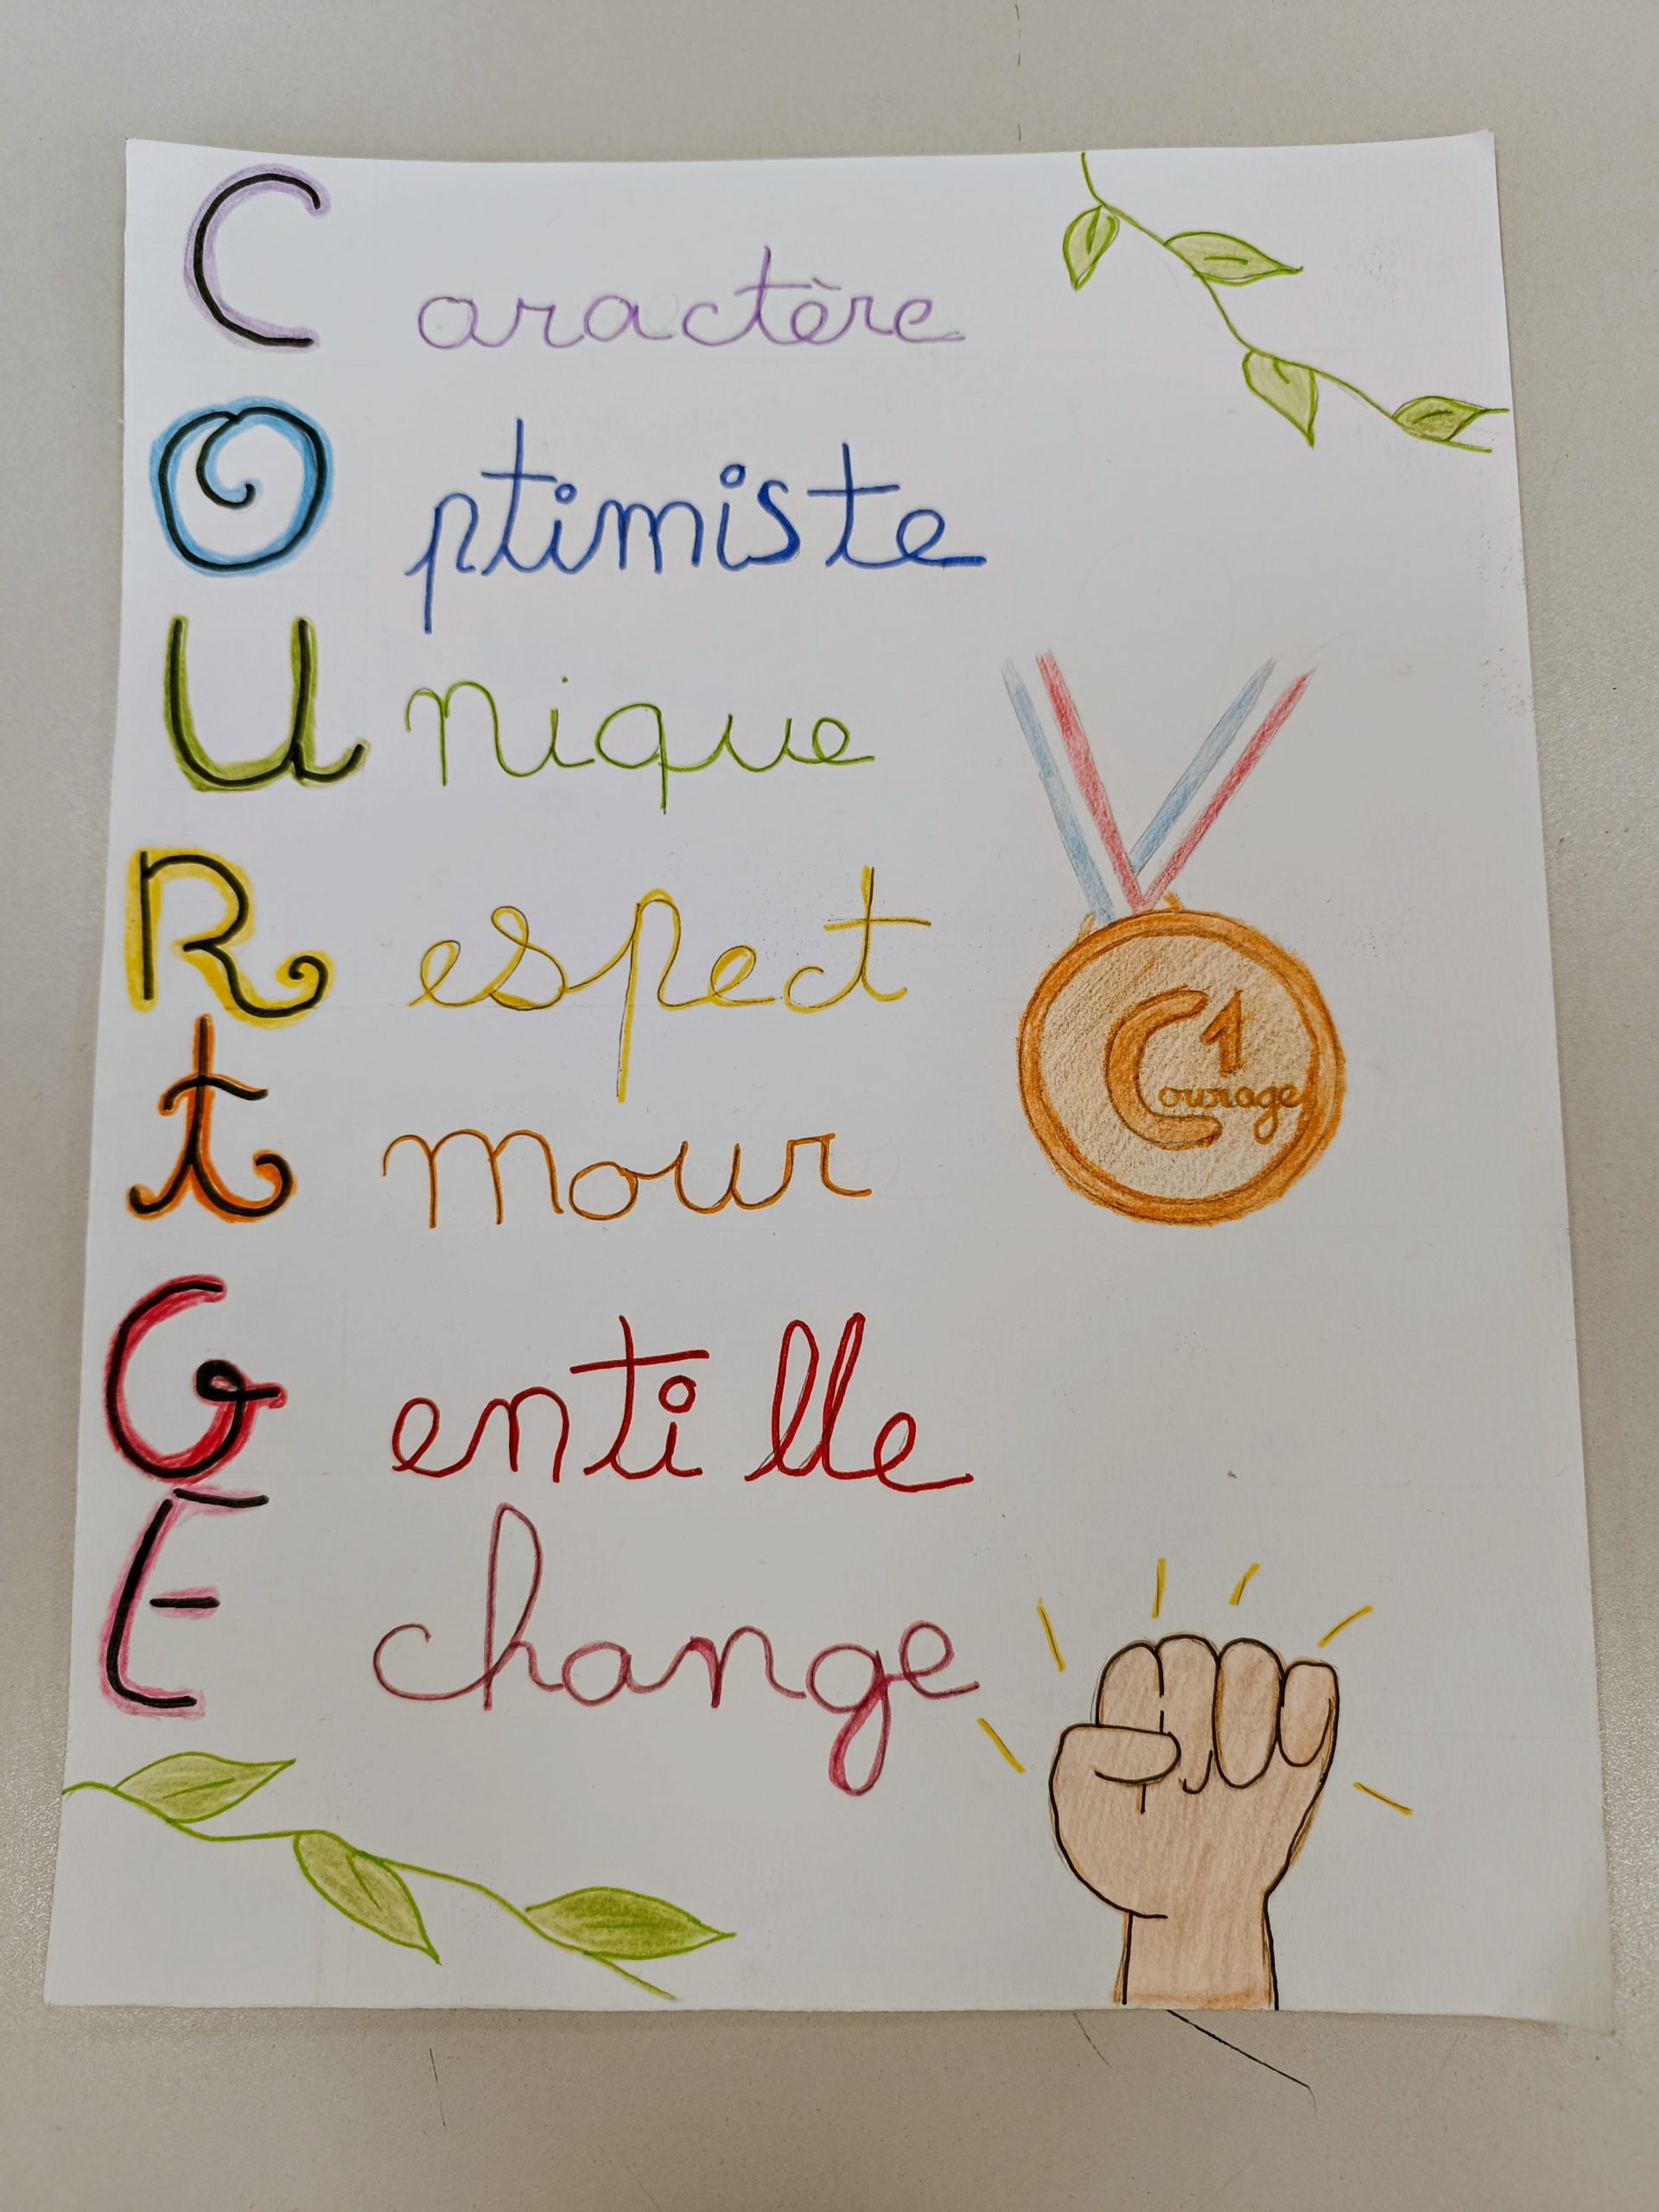 Caractère
Optimiste
Unique
Respect
Amour
Gentille
Echange
1
Courage